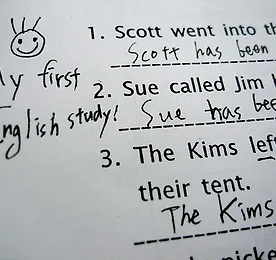 1. Scott went into th
Scott has been
My first
2. Sue called Jim
English study!
Sue has bee
3. The Kims left
their tent.
The Kims